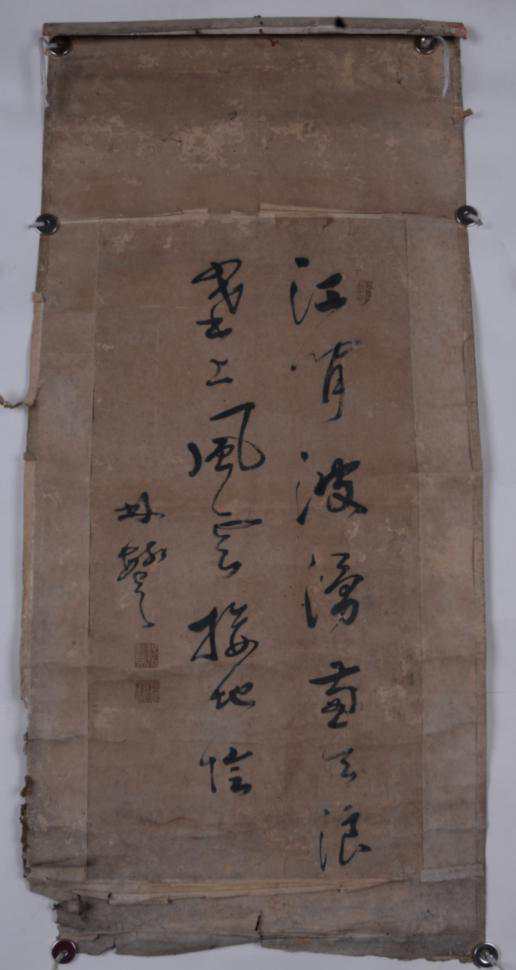 江間波湧兼天浪
塞上風雲接地陰